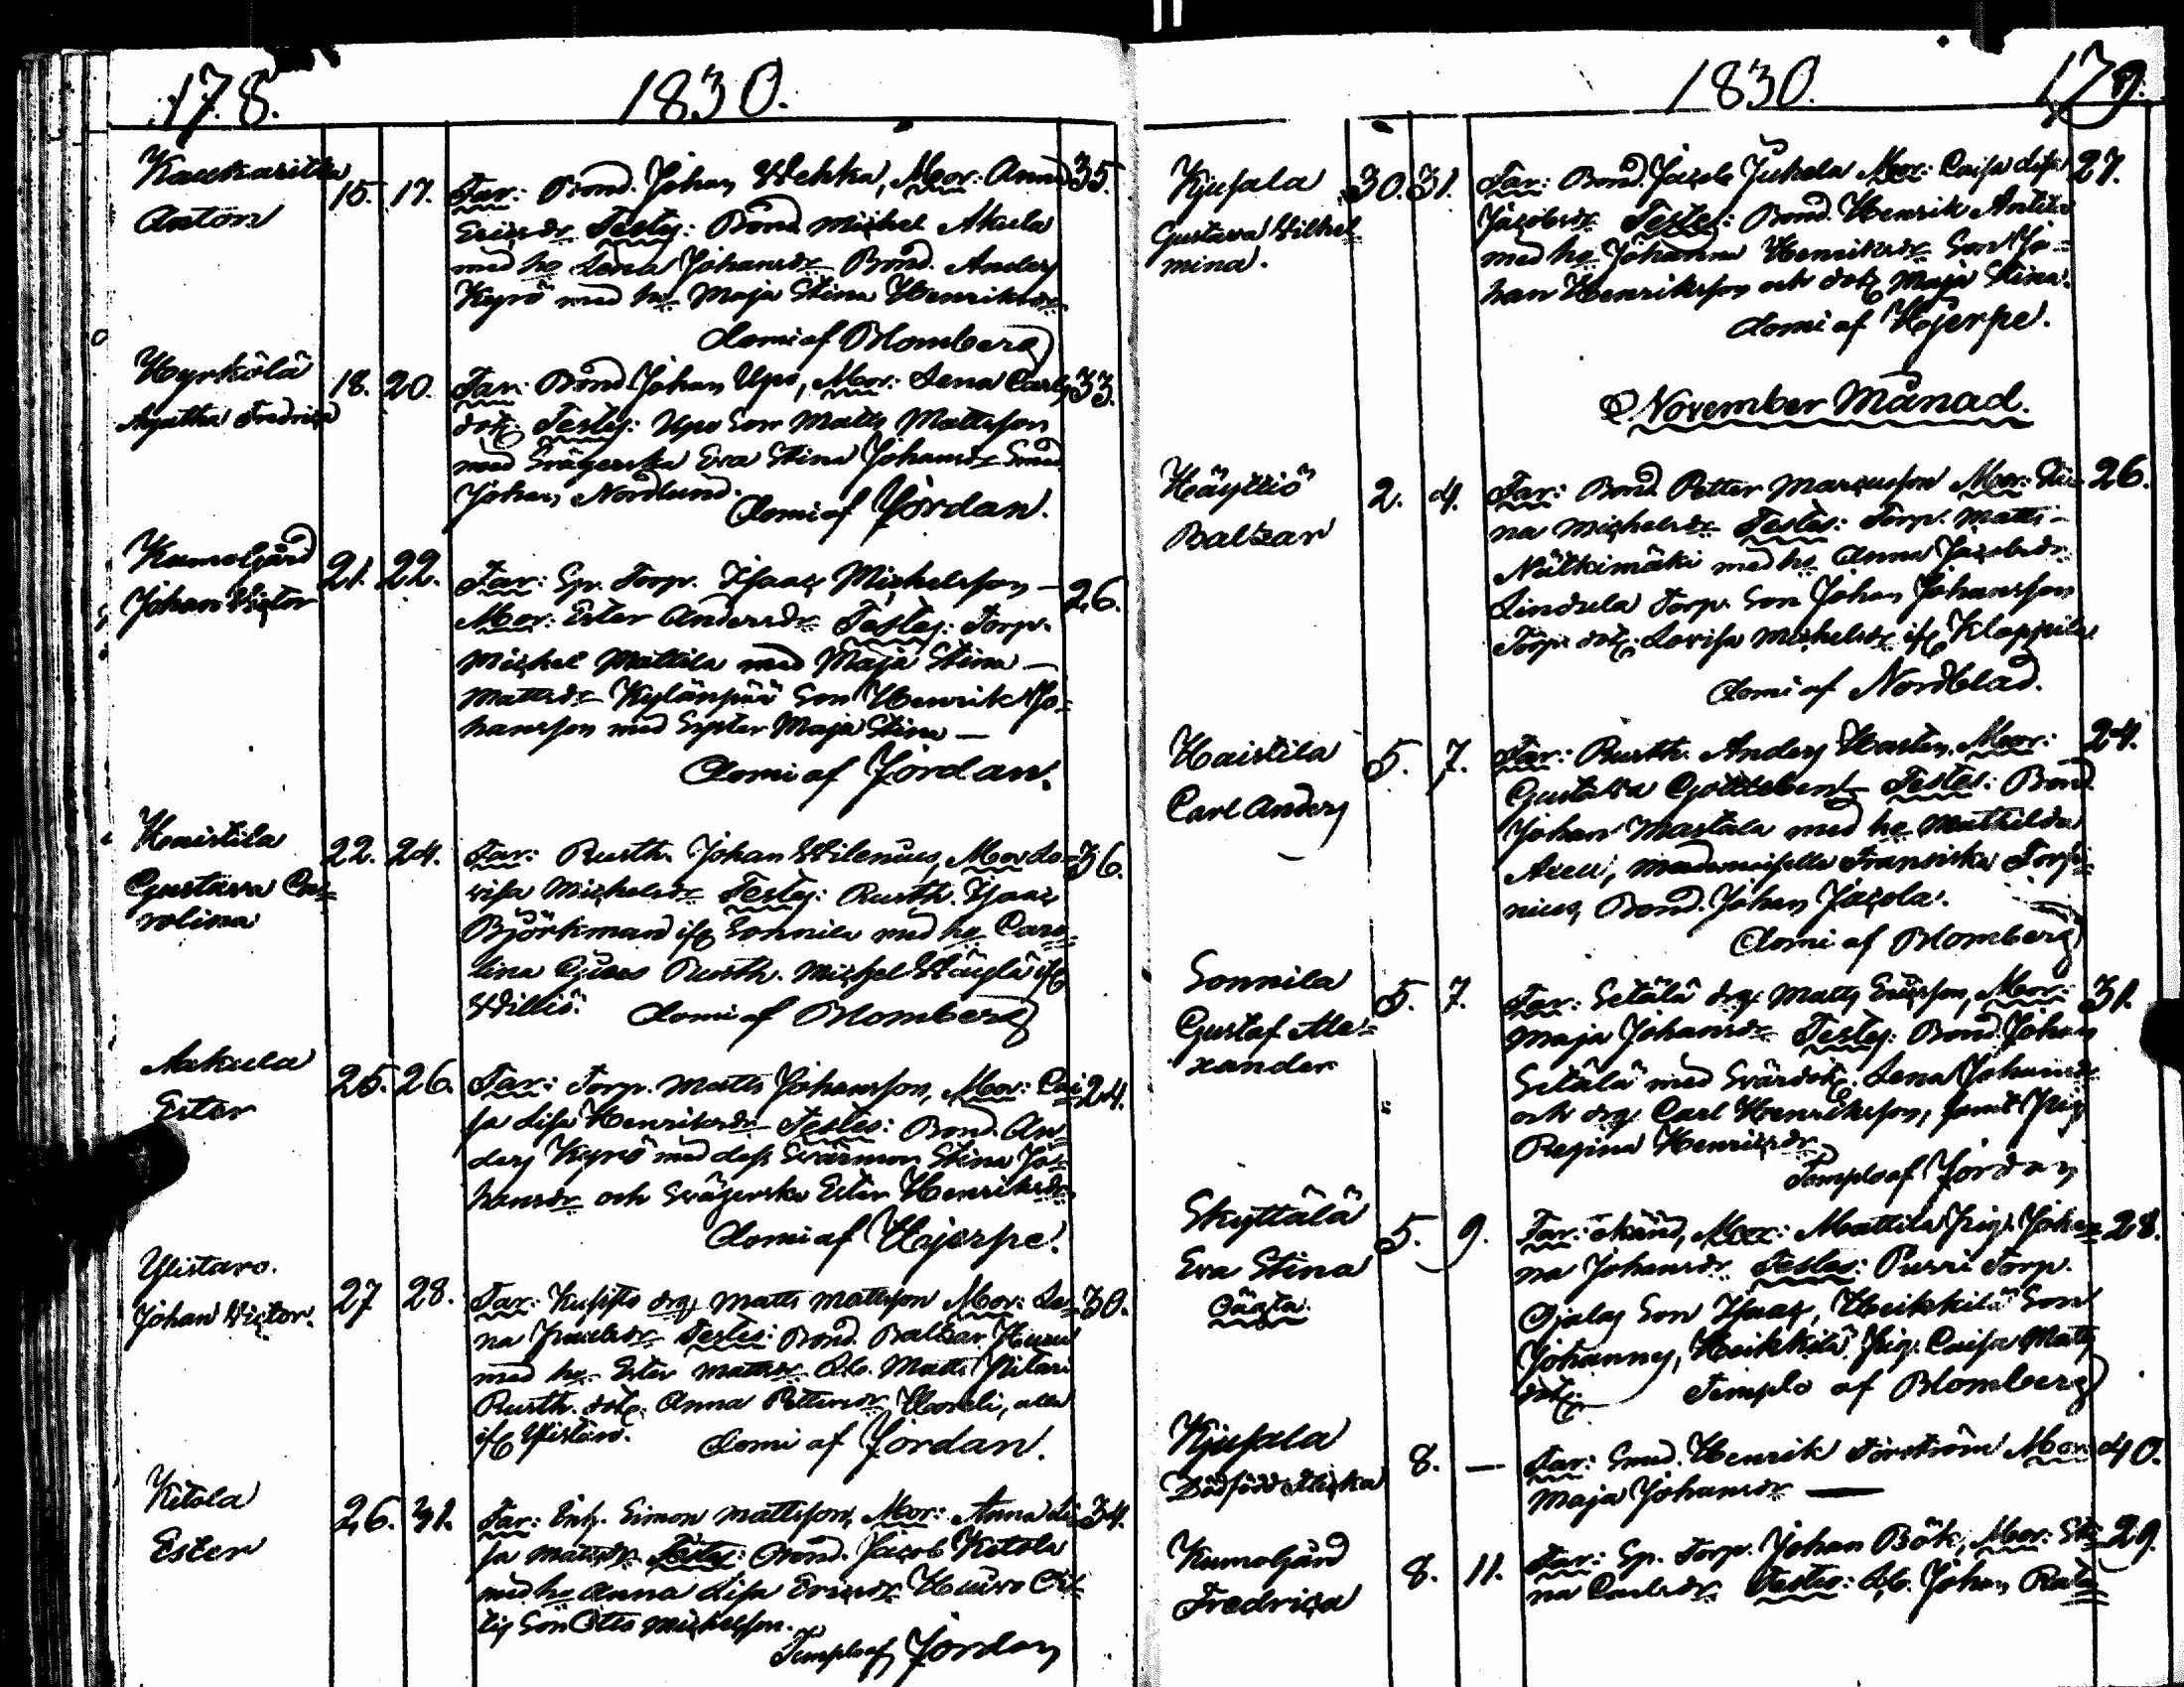 178.
1830.
Kaukaritta
Anton
15. 17.
Far: Bond. Johan Wehka, Mor: Anna 35.
Ericsdr Testes: Bond. Michel Akula
med ho Lena Johansdr Bond. Anders
Kyrö med ho Maja Stina Henriksdr
domi af Blomberg
Hyrkölä
Agatha Fredrica
18. 20.
Far: Bond. Johan Upo, Mor: Lena Carls 33.
dotr Testes: Upo Son Matts Mattsson
med Svägerska Eva Stina Johansdr Smed
Johan Nordlund.
domi af Jordan.
Kumogård
Johan Victor
21. 22.
Far: Sp. Torp. Isaac Michelsson — 26.
Mor: Ester Andersdr Testes: Torp.
Michel Mattila med Maja Stina —
Mattsdr Kylänpää Son Henrik Jo=
hansson med Syster Maja Stina —
domi af Jordan.
Haistila
Gustava Ca=
rolina
22. 24.
Far: Rusth. Johan Wilenius, Mor Lo= 36.
visa Michelsdr Testes: Rusth. Isaac
Björkman ifr Sonnila med ho Caro=
lina Rusth. Michel ifr
Willió.
domi af Blomberg
Askula
Ester
25. 26.
Far: Torp. Matts Johansson, Mor: Cai 24.
sa Lisa Henriksdr Testes: Bond. An=
ders Kyrö med dess Svärmor Stina Jo=
hansdr och Svägerska Ester Henriksdr
domi af Hjerpe.
Ylistaro.
Johan Victor.
27 28.
Far: drg. Matts Mattsson Mor: Le= 30.
na Testes: Bond. Baltzar
med ho Ester Mattsdr Matts
Rusth. dotr. Anna Pettersdr alla
ifr Ylistaro.
domi af Jordan.
Ketola
Ester
26. 31.
Far: Inh. Simon Mattsson, Mor: Anna Li= 34.
sa Mattsdr Testes: Bond. Jacob Ketola
med ho Anna Lisa Ericsdr
Son Otto Michelsson.
Templo af Jordan
1830.
179.
Kjusala
Gustava Wilhel
mina.
30. 31.
Far: Bond. Jacob Juhela Mor: Caisa Lisa 27.
Jacobsdr Testes: Bond. Henrik Antila
med ho Johanna Henriksdr Son Jo=
han Henriksson och dotr Maja Stina.
domi af Hjerpe.
November Månad.
Häyhiö
Baltzar
2. 4.
Far: Bond. Petter Marcusson Mor: Sti= 26.
na Michelsdr Testes: Torp. Matts
Nätkimäki med ho Anna Jacobsdr
Lindula Torp. Son Johan Johansson
Torp. dotr. Lovisa Michelsdr ifr
domi af Nordblad.
Haistila
Carl Anders
5. 7.
Far: Rusth. Anders Hasten, Mor: 24.
Gustava Testes: Bond
Johan Mastala med ho Mathilda
mademoiselle Fransiska
nius, Bond. Johan Jacola.
domi af Blomberg
Sonnila
Gustaf Ale=
xander
5. 7.
Far: Setälä drg. Matts Ericsson, Mor: 31.
Maja Johansdr Testes: Bond. Johan
Setälä med Svärdotr. Lena Johansdr
och drg. Carl Henriksson, samt Pig.
Regina Henricsdr
Templo af Jordan
Skyttälä
Eva Stina
Oäkta.
5. 9.
Far: okänd, Mor: Mattila Pig. Johan= 28.
na Johansdr Testes: Purri Torp.
Ojalas Son Isaac, Heikkilä Son
Johannes, Heikkilä Pig. Caisa Matts
dotr
Templo af Blomberg
Kjusala
Dödfödd flicka
8. —
Far: Smed. Henrik Mor: 40.
Maja Johansdr —
Kumogård
Fredrica
8. 11.
Far: Sp. Torp. Johan Bök, Mor: Sti= 29.
na Carlsdr Testes: Johan